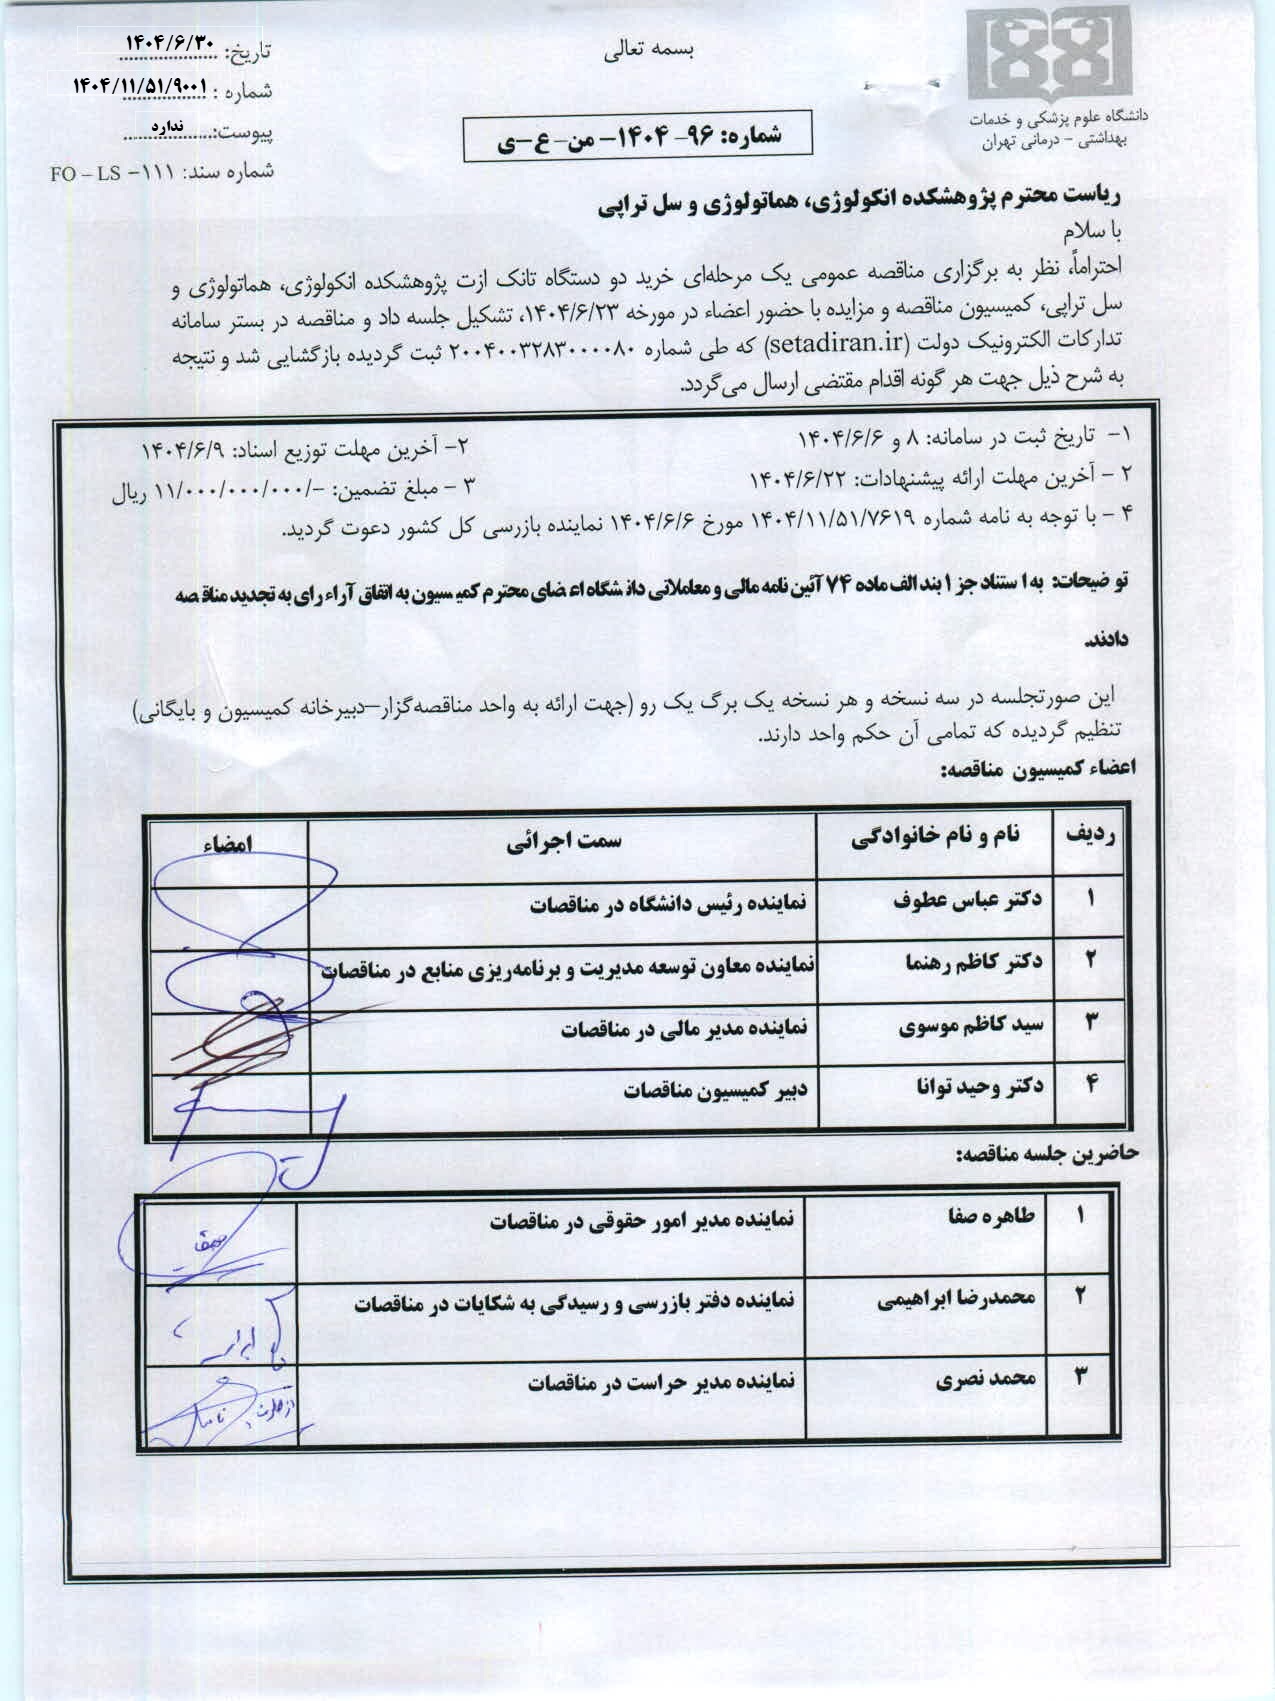 بسمه تعالی
تاریخ: ۱۴۰۴/۶/۳۰
شماره: ۱۴۰۴/۱۱/۵۱/۹۰۰۱
پیوست: ندارد
شماره سند: FO – LS –۱۱۱
دانشگاه علوم پزشکی و خدمات
بهداشتی – درمانی تهران
شماره: ۹۶- ۱۴۰۴- من- ع-ی
ریاست محترم پژوهشکده انکولوژی، هماتولوژی و سل تراپی
با سلام
احتراماً، نظر به برگزاری مناقصه عمومی یک مرحله‌ای خرید دو دستگاه تانک ازت پژوهشکده انکولوژی، هماتولوژی و
سل تراپی، کمیسیون مناقصه و مزایده با حضور اعضاء در مورخه ۱۴۰۴/۶/۲۳، تشکیل جلسه داد و مناقصه در بستر سامانه
تدارکات الکترونیک دولت (setadiran.ir) که طی شماره ۲۰۰۴۰۰۳۲۸۳۰۰۰۰۸۰ ثبت گردیده بازگشایی شد و نتیجه
به شرح ذیل جهت هر گونه اقدام مقتضی ارسال می‌گردد.
۱- تاریخ ثبت در سامانه: ۸ و ۱۴۰۴/۶/۶
۲- آخرین مهلت توزیع اسناد: ۱۴۰۴/۶/۹
۲ – آخرین مهلت ارائه پیشنهادات: ۱۴۰۴/۶/۲۲
۳ – مبلغ تضمین: -/۱۱/۰۰۰/۰۰۰/۰۰۰ ریال
۴ – با توجه به نامه شماره ۱۴۰۴/۱۱/۵۱/۷۶۱۹ مورخ ۱۴۰۴/۶/۶ نماینده بازرسی کل کشور دعوت گردید.
توضیحات: به استناد جز ۱ بند الف ماده ۷۴ آئین نامه مالی و معاملاتی دانشگاه اعضای محترم کمیسیون به اتفاق آراء رای به تجدید مناقصه
دادند.
این صورتجلسه در سه نسخه و هر نسخه یک برگ یک رو (جهت ارائه به واحد مناقصه‌گزار–دبیرخانه کمیسیون و بایگانی)
تنظیم گردیده که تمامی آن حکم واحد دارند.
اعضاء کمیسیون مناقصه:
ردیف نام و نام خانوادگی سمت اجرائی امضاء
۱ دکتر عباس عطوف نماینده رئیس دانشگاه در مناقصات
۲ دکتر کاظم رهنما نماینده معاون توسعه مدیریت و برنامه‌ریزی منابع در مناقصات
۳ سید کاظم موسوی نماینده مدیر مالی در مناقصات
۴ دکتر وحید توانا دبیر کمیسیون مناقصات
حاضرین جلسه مناقصه:
۱ طاهره صفا نماینده مدیر امور حقوقی در مناقصات
۲ محمدرضا ابراهیمی نماینده دفتر بازرسی و رسیدگی به شکایات در مناقصات
۳ محمد نصری نماینده مدیر حراست در مناقصات